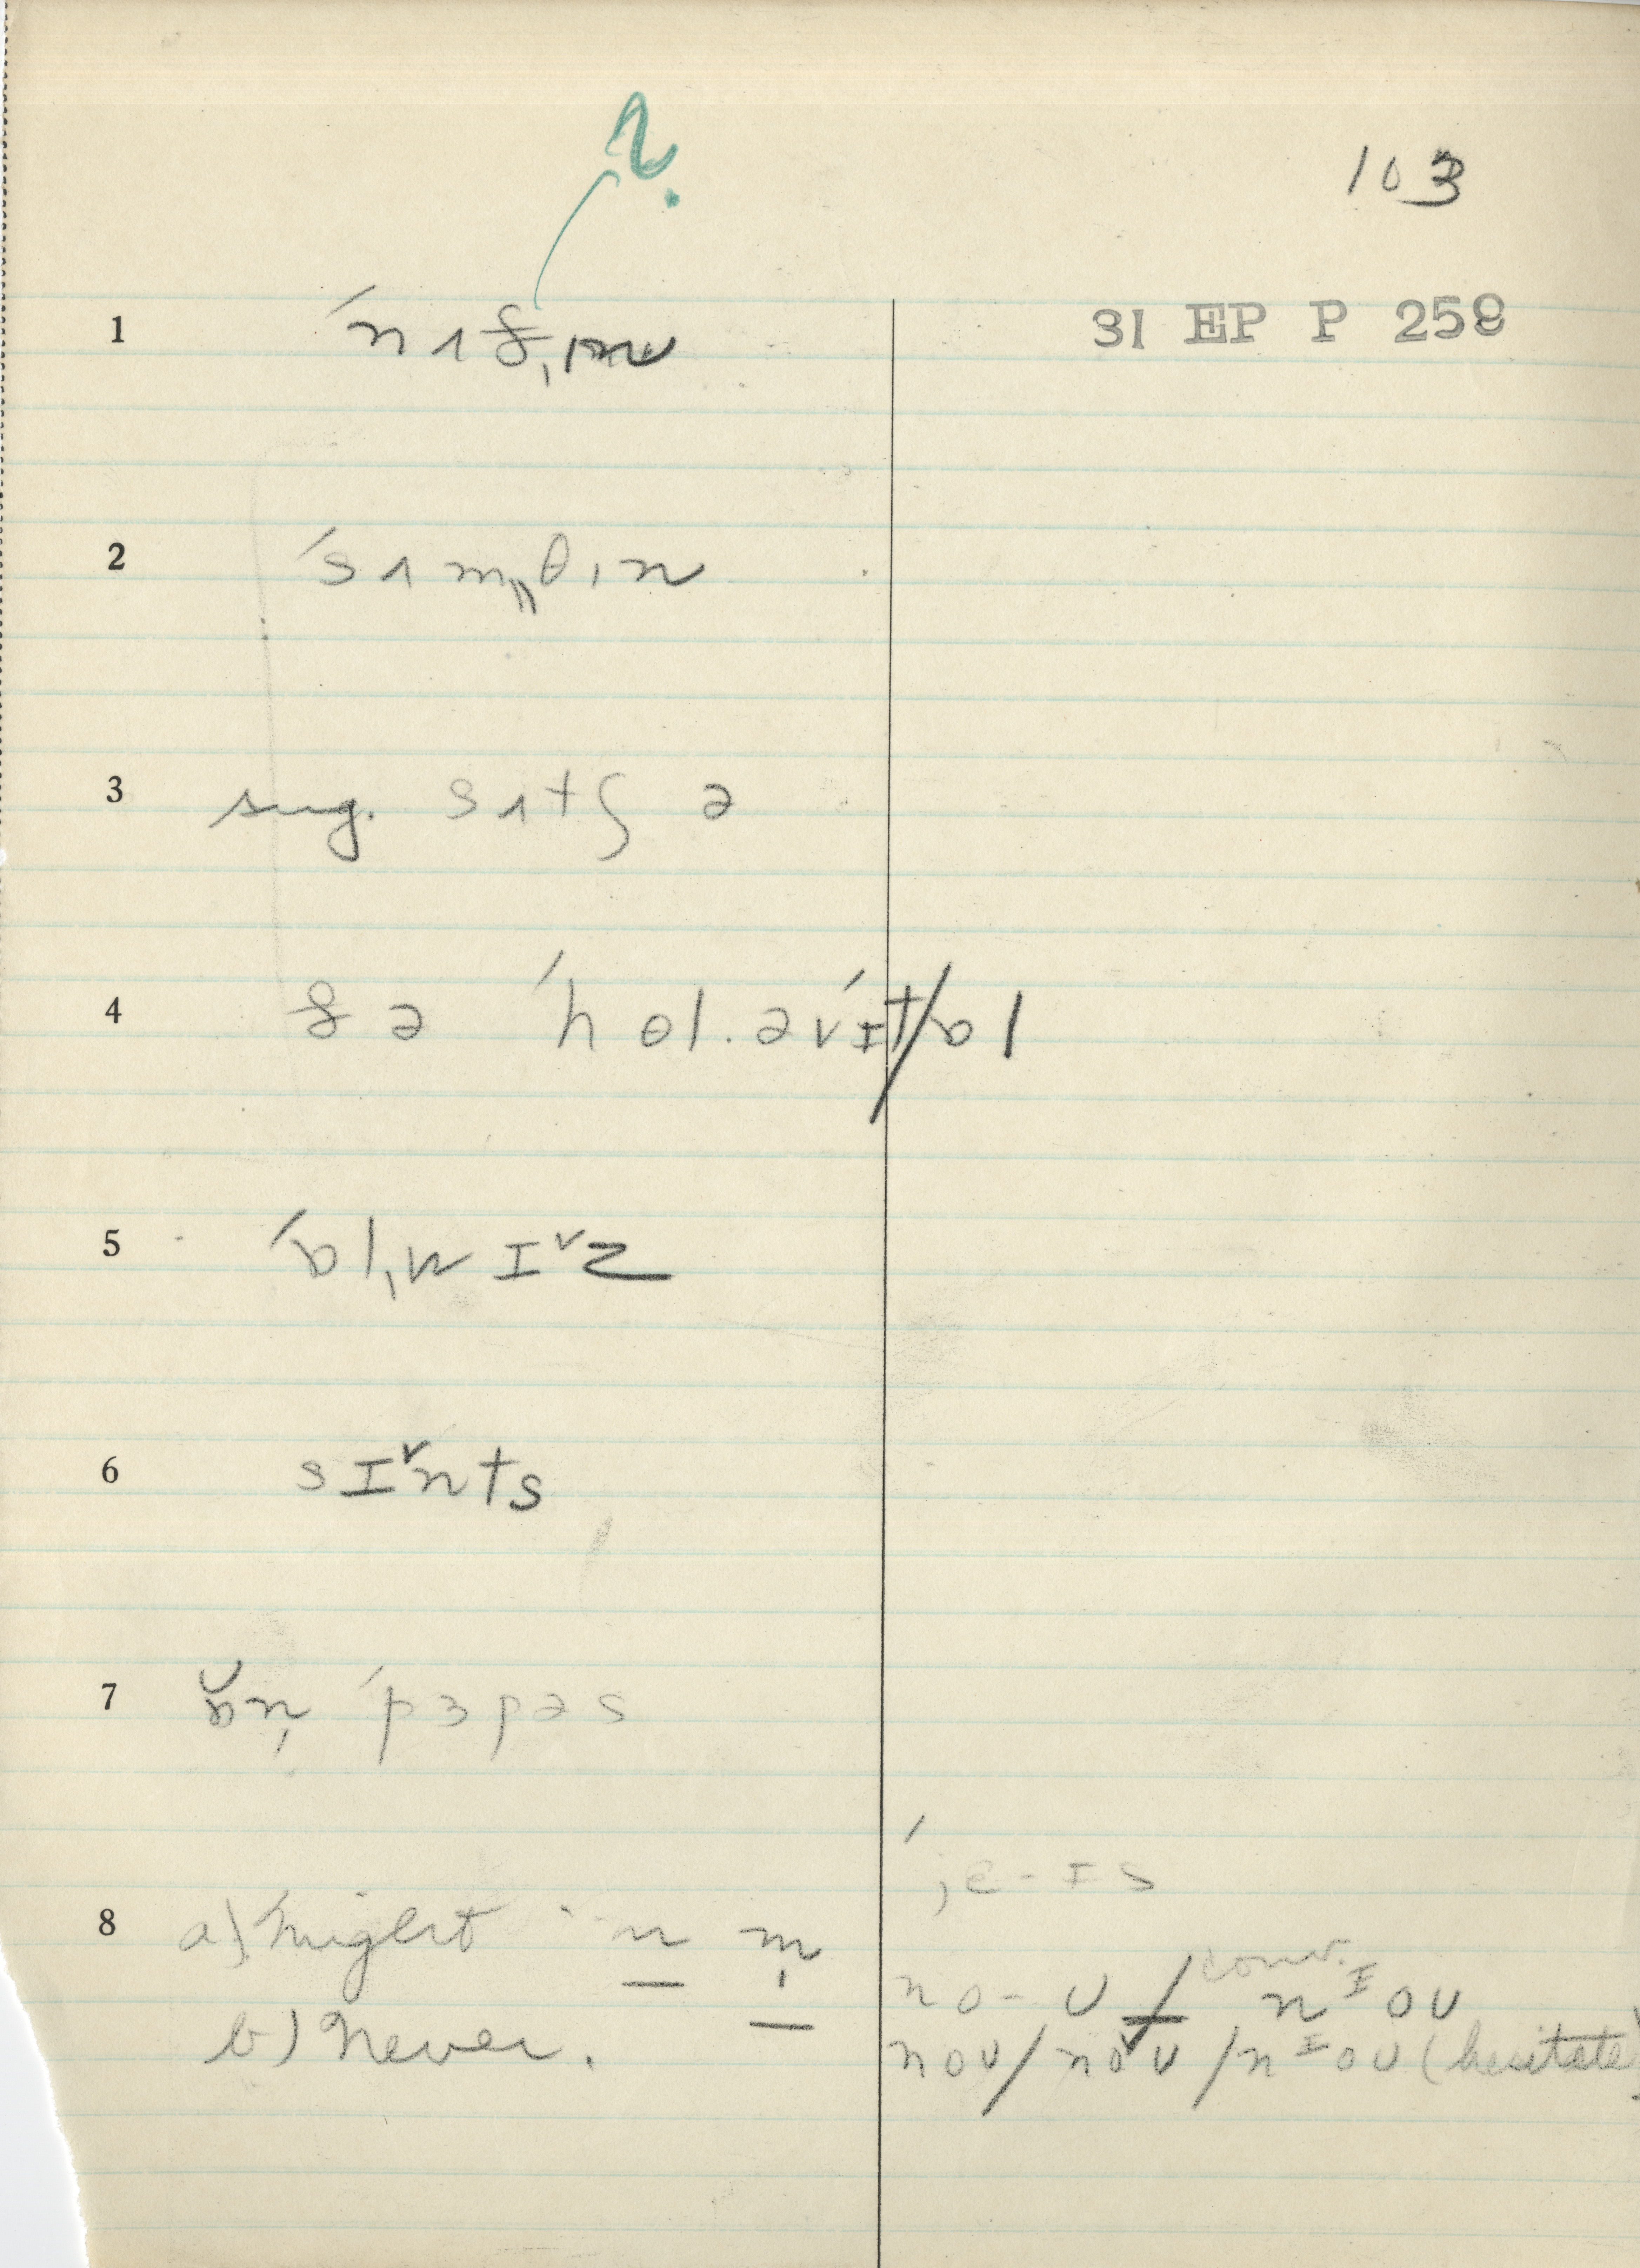 ?
103
31 EP P 258
1 ˈnʌðˌɪn
2 ˈsʌm„θɪn
3 sug. sʌtʃ ə
4 ðə ˈhol.əvˈɪt/ɒl
5 ˈɒlˌwɪ˅z
6 sɪ˅nts
7 ɒ̆n̩ ˈpɜpəs
8 a) might n m̩
ˈjɛ-ɪs
b) Never.
no-ʊ / conv. nᶦoʊ
noʊ / no˅ʊ / nᶦoʊ (hesitate)